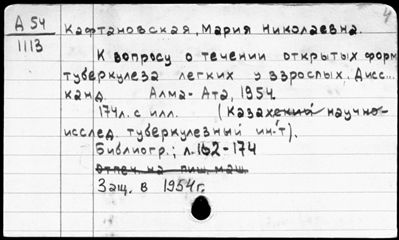 4
А 54
1113
Кафтановская, Мария Николаевна.
К вопросу о течении открытых форм
туберкулеза легких у взрослых. Дисс...
канд. Алма-Ата, 1954.
174л. с илл. (Казахский научно-
исслед. туберкулезный ин-т).
Библиогр.; л. 162-174
Отпеч. на пиш. маш.
Защ. в 1954г.